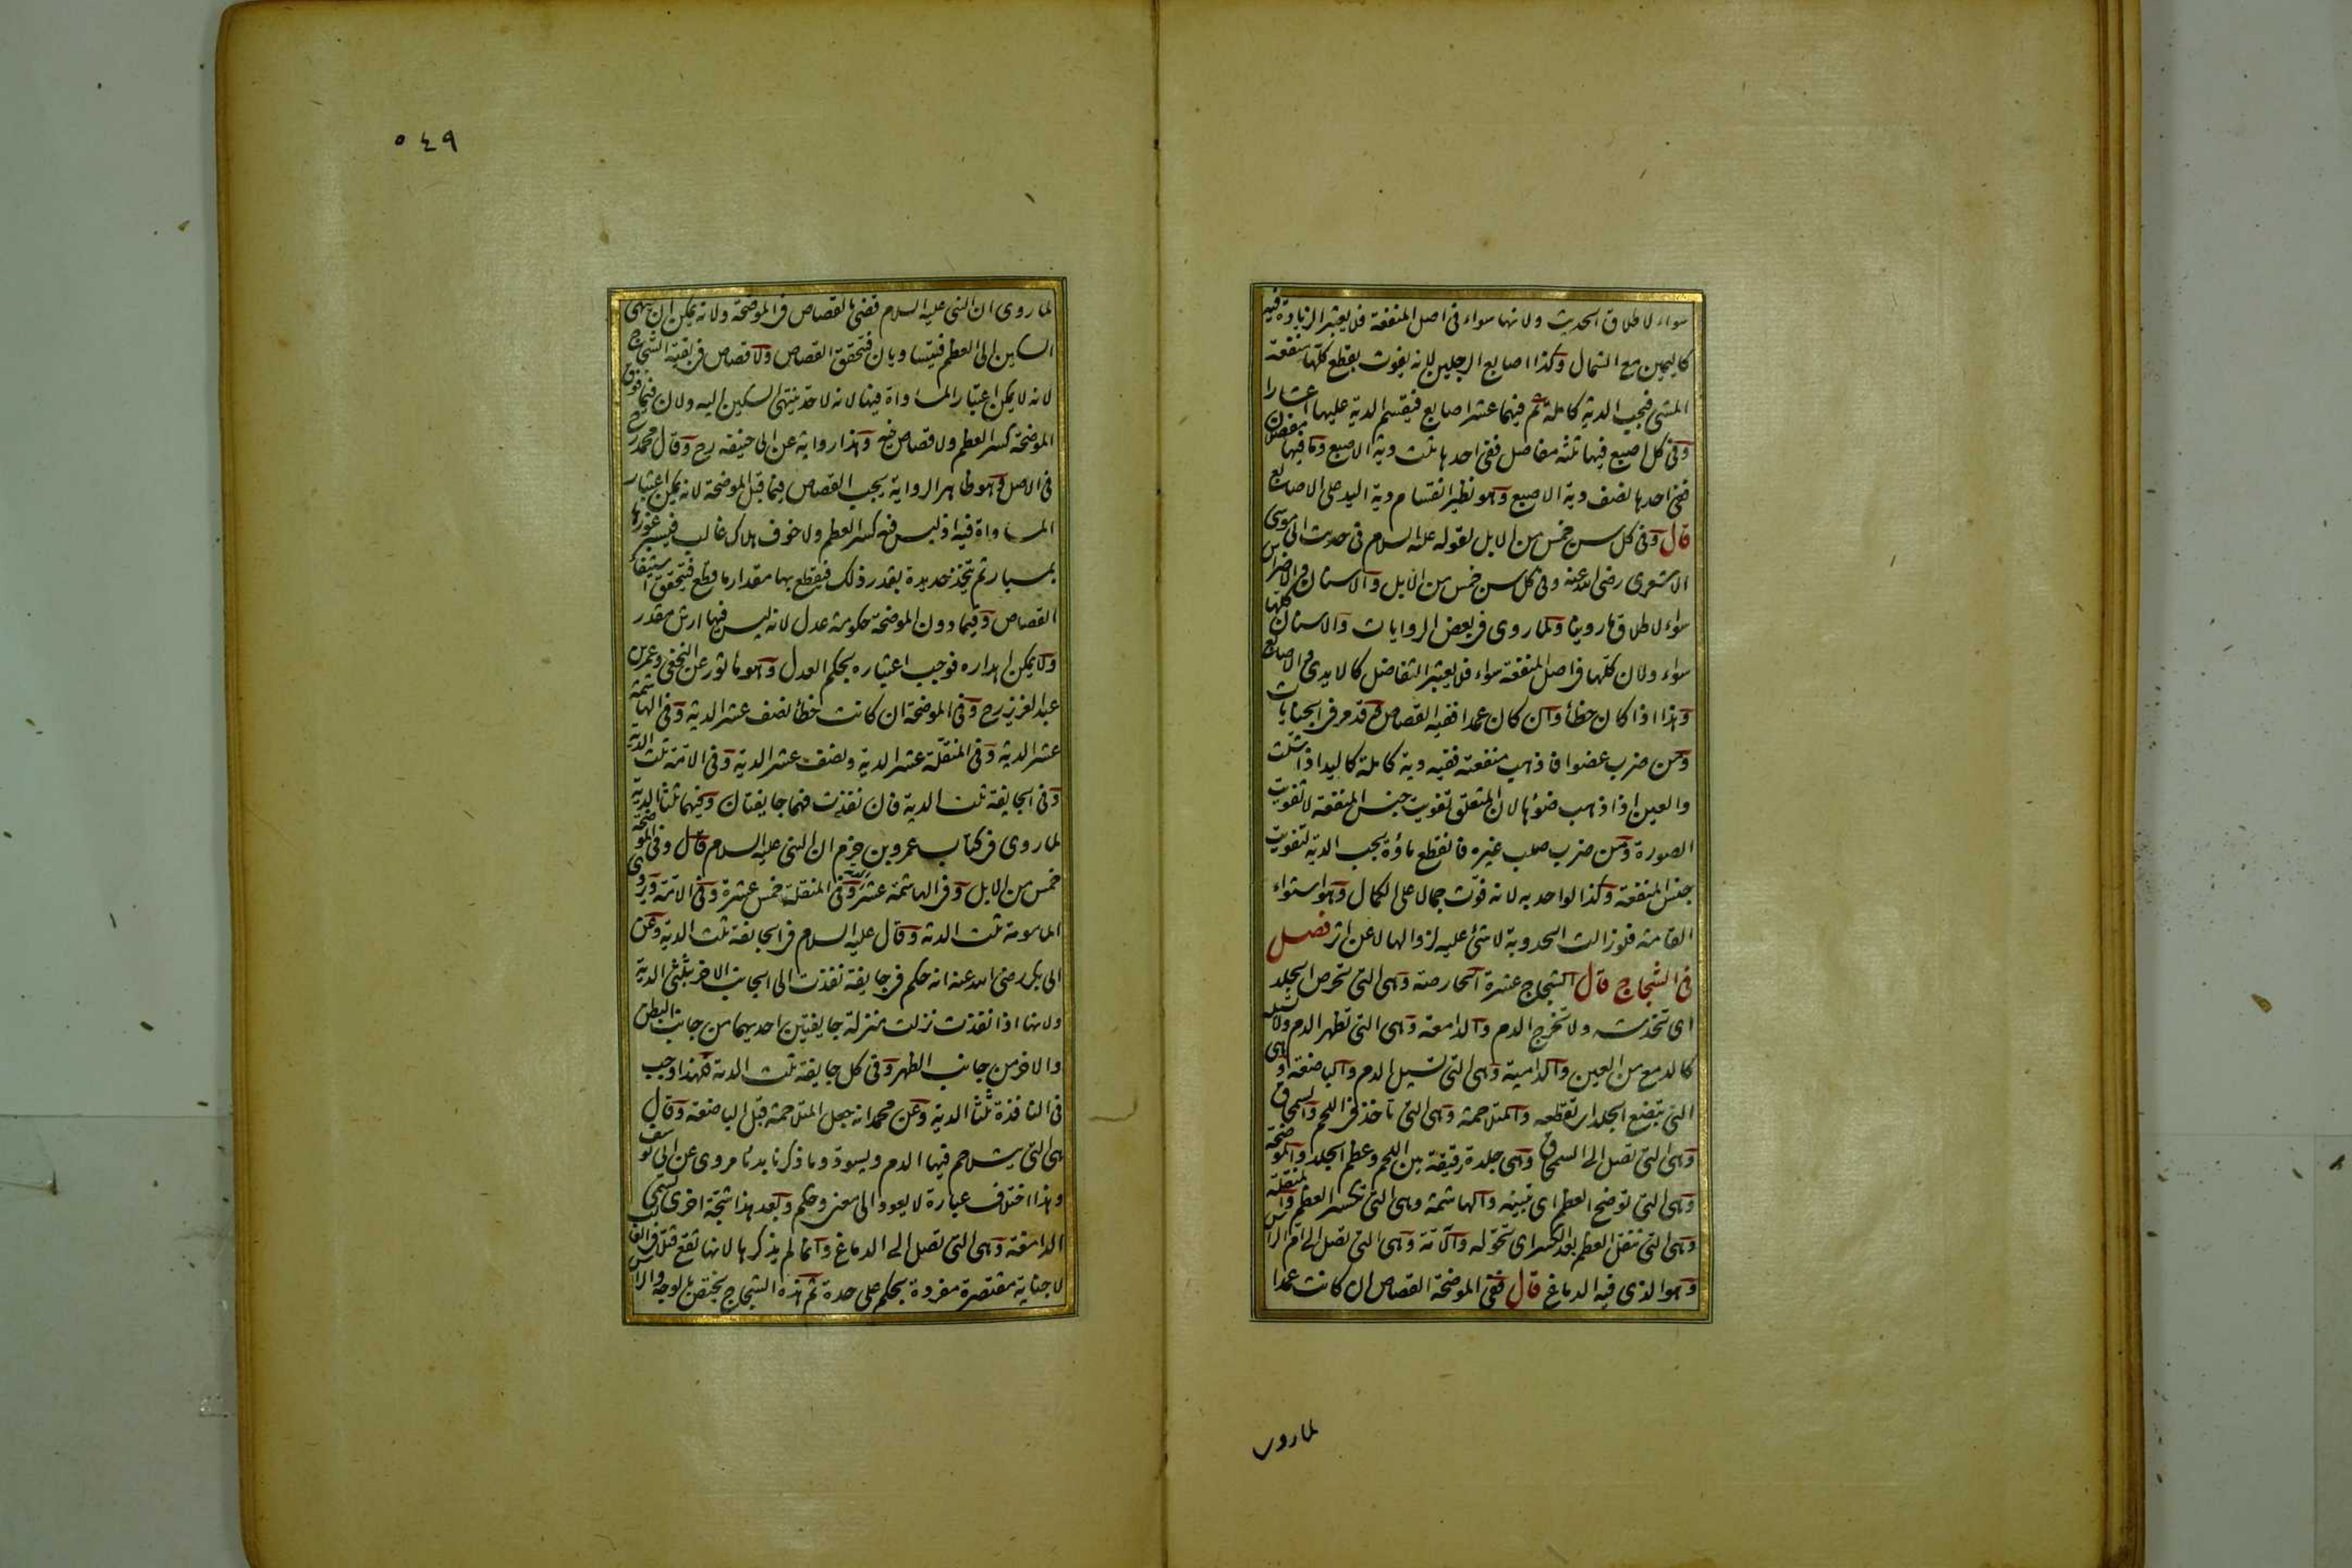 سواء لاطلاق الحديث ولانها سواء فى اصل المنفعة فلا يعتبر الزيادة فيه
كاليمين مع الشمال وكذا اصابع الرجلين لانه يفوت بقطع كلها منفعة
المشى فتجب الدية كاملة ثم فيهما عشر اصابع فيقسم الدية عليها اعشارا
وفى كل اصبع فيها ثلثة مفاصل ففى احدها ثلث دية الاصبع وما فيها مفصلان
ففى احدها نصف دية الاصبع وهو نظير انقسام دية اليد على الاصابع
قال وفى كل سن خمس من الابل لقوله عليه السلام فى حديث ابى موسى
الاشعرى رضى الله عنه وفى كل سن خمس من الابل والاسنان والاضراس
سواء لاطلاق ما روينا ولما روى فى بعض الروايات والاسنان كلها
سواء ولان كلها فى اصل المنفعة سواء فلا يعتبر التفاضل كالايدى والاصابع
وهذا اذا كان خطأ وان كان عمدا ففيه القصاص ثم قد مر فى الجنايات
ومن ضرب عضوا فاذهب منفعته ففيه دية كاملة كاليد اذا شلت
والعين اذا ذهب ضوؤها لان المتعلق تفويت جنس المنفعة لا تفويت
الصورة ومن ضرب صلب غيره فانقطع ماؤه يجب الدية لتفويت
جنس المنفعة وكذا لو احدبه لانه فوت جمالا على الكمال وهو استواء
القامة فلو زالت الحدوبة لا شئ عليه لزوالها لا عن اثر فصل
فى الشجاج قال الشجاج عشرة الحارصة وهى التى تحرص الجلد
اى تخدشه ولا تخرج الدم والدامعة وهى التى تظهر الدم ولا تسيله
كالدمع من العين والدامية وهى التى تسيل الدم والباضعة وهى
التى تبضع الجلد اى تقطعه والمتلاحمة وهى التى تأخذ فى اللحم والسمحاق
وهى التى تصل الى السمحاق وهى جلدة رقيقة بين اللحم وعظم الجلد والموضحة
وهى التى توضح العظم اى تبينه والهاشمة وهى التى تكسر العظم والمنقلة
وهى التى تنقل العظم بعد الكسر اى تحوله والآمة وهى التى تصل الى ام الراس
وهو الذى فيه الدماغ قال ففى الموضحة القصاص ان كانت عمدا
لما روى
٥٤٩
لما روى ان النبى عليه السلام قضى بالقصاص فى الموضحة ولانه يمكن ان ينتهى
السكين الى العظم فيتساويان فتحقق القصاص ولا قصاص فى بقية الشجاج
لانه لا يمكن اعتبار المساواة فيها لانه لا حد ينتهى السكين اليه ولان فيما فوق
الموضحة كسر العظم ولا قصاص فيه وهذا رواية عن ابى حنيفه رح وقال محمد رح
فى الاصل وهو ظاهر الرواية يجب القصاص فيما قبل الموضحة لانه يمكن اعتبار
المساواة فيه اذ ليس فيه كسر العظم ولا خوف هلاك غالب فيسبر غورها
بمسبار ثم يتخذ حديدة بقدر ذلك فيقطع بها مقدار ما قطع فيتحقق استيفاء
القصاص وفيما دون الموضحة حكومة عدل لانه ليس فيها ارش مقدر
ولا يمكن اهداره فوجب اعتباره بحكم العدل وهو مأثور عن النخعى وعمر بن
عبد العزيز رح وفى الموضحة ان كانت خطأ نصف عشر الدية وفى الهاشمة
عشر الدية وفى المنقلة عشر الدية ونصف عشر الدية وفى الآمة ثلث الدية
وفى الجايفة ثلث الدية فان نفذت فهما جايفتان وفيهما ثلثا الدية
لما روى فى كتاب عمرو بن حزم ان النبى عليه السلام قال وفى الموضحة
خمس من الابل وفى الهاشمة عشر وفى المنقلة خمس عشرة وفى الآمة ويروى
المامومة ثلث الدية وقال عليه السلام فى الجايفة ثلث الدية وعن
ابى بكر رضى الله عنه انه حكم فى جايفة نفذت الى الجانب الاخر بثلثى الدية
ولانها اذا نفذت نزلت منزلة جايفتين احديهما من جانب البطن
والاخر من جانب الظهر وفى كل جايفة ثلث الدية فلهذا وجب
فى النافذة ثلثا الدية وعن محمد انه جعل المتلاحمة قبل الباضعة وقال
هى التى يتلاحم فيها الدم ويسود وما ذكرنا بدئا مروى عن ابى يوسف
وهذا اختلاف عبارة لا يعود الى معنى وحكم وبعد هذا شجة اخرى تسمى
الدامغة وهى التى تصل الى الدماغ وانما لم يذكرها لانها تقع قتلا فى الغالب
لا جناية مقتصرة مفردة بحكم على حدة ثم هذه الشجاج يختص بالوجه والراس